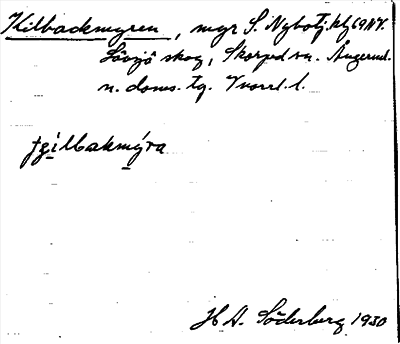 Kilbackmyren, myr S. Nybotj.kl 69NV.
Lövsjö skog, Skorped sn. Ångerml.
n. doms. tg. Tvared. l.
tʒilbakmýra
H A. Söderberg 1930